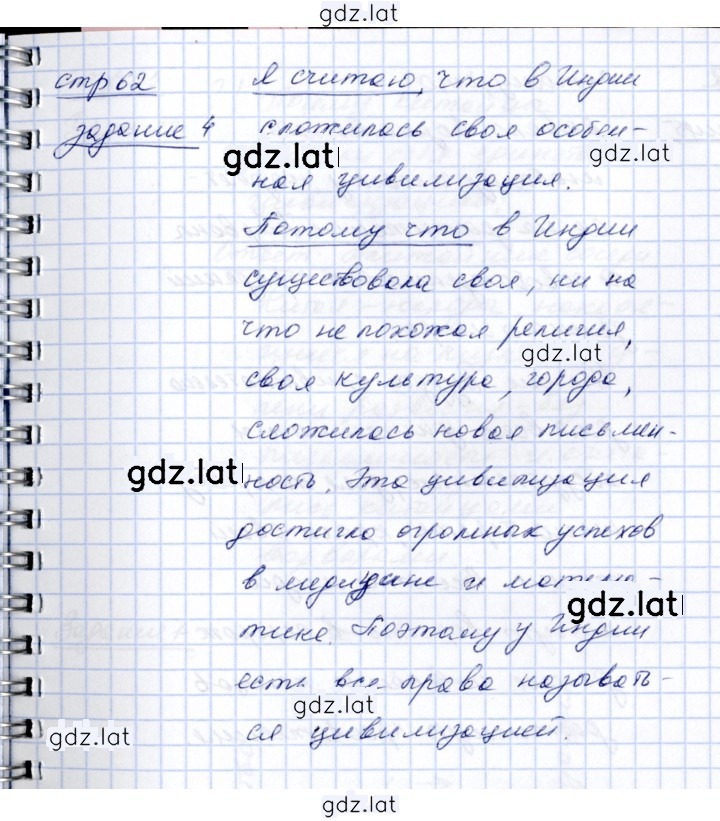 gdz.lat
стр 62
Я считаю, что в Индии
задание 4
сложилась своя особен-
gdz.lat
gdz.lat
ная цивилизация.
Потому что в Индии
существовала своя, ни на
что не похожая религия,
gdz.lat
своя культура, города,
сложилась новая письмен-
gdz.lat
ность. Эта цивилизация
достигла огромных успехов
в медицине и матема-
gdz.lat
тике. Поэтому у Индии
есть все права называть-
gdz.lat
ся цивилизацией.
gdz.lat
gdz.lat